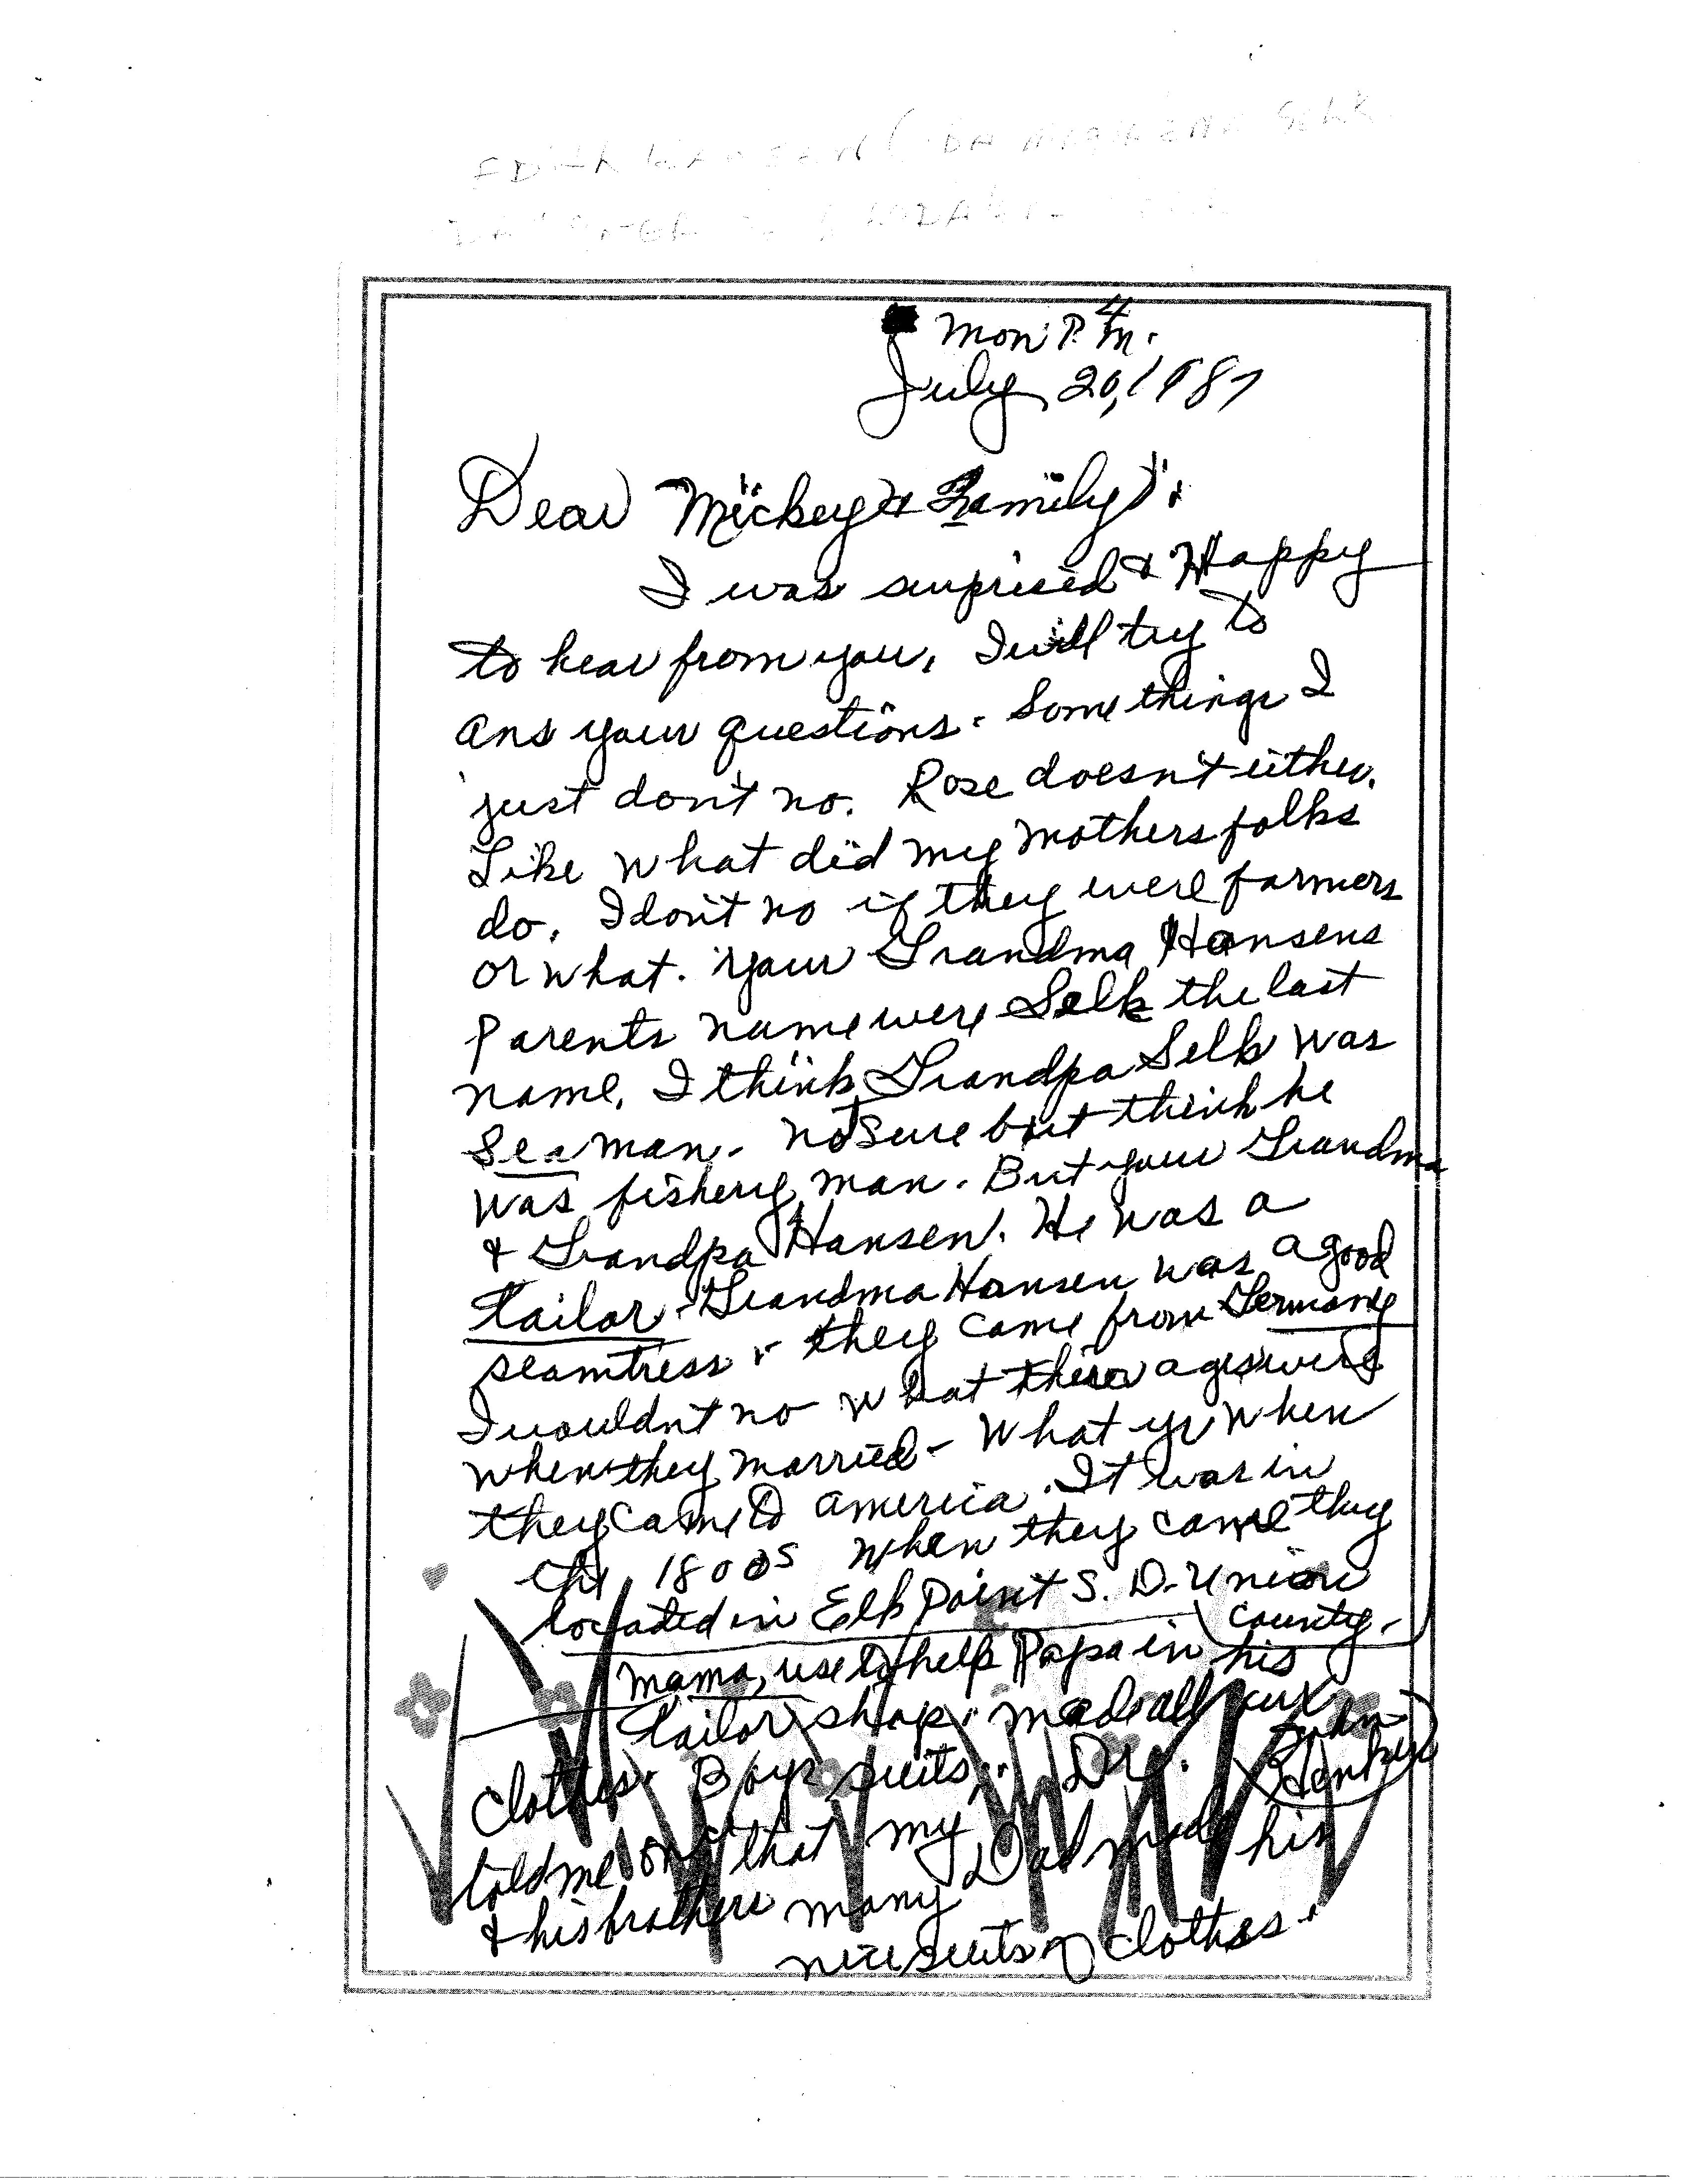 Mon P. M. 4
July 20, 1987
Dear Mickey & Family:
I was surprised & Happy
to hear from you, I will try to
ans your questions. Some things I
just don't no. Rose doesn't either.
Like what did my mothers folks
do. I don't no if they were farmers
or what. your Grandma Hansens
Parents name were Selk the last
name. I think Grandpa Selk was
Sea man. not sure but think he
was fishery man. But your Grandma
& Grandpa Hansen. He was a
tailor. Grandma Hansen was a good
seamtress. they came from Germany
I wouldnt no what their ages were
when they married - What yr when
they came to America. It was in
the 1800s when they came they
located in Elk Point S. D. Union
County.
Mama, use to help Papa in his
tailor shop. made all our
clothes. Boys suits. Dr.
told me once that my Dad made his
& his brothers many
nice suits of clothes.